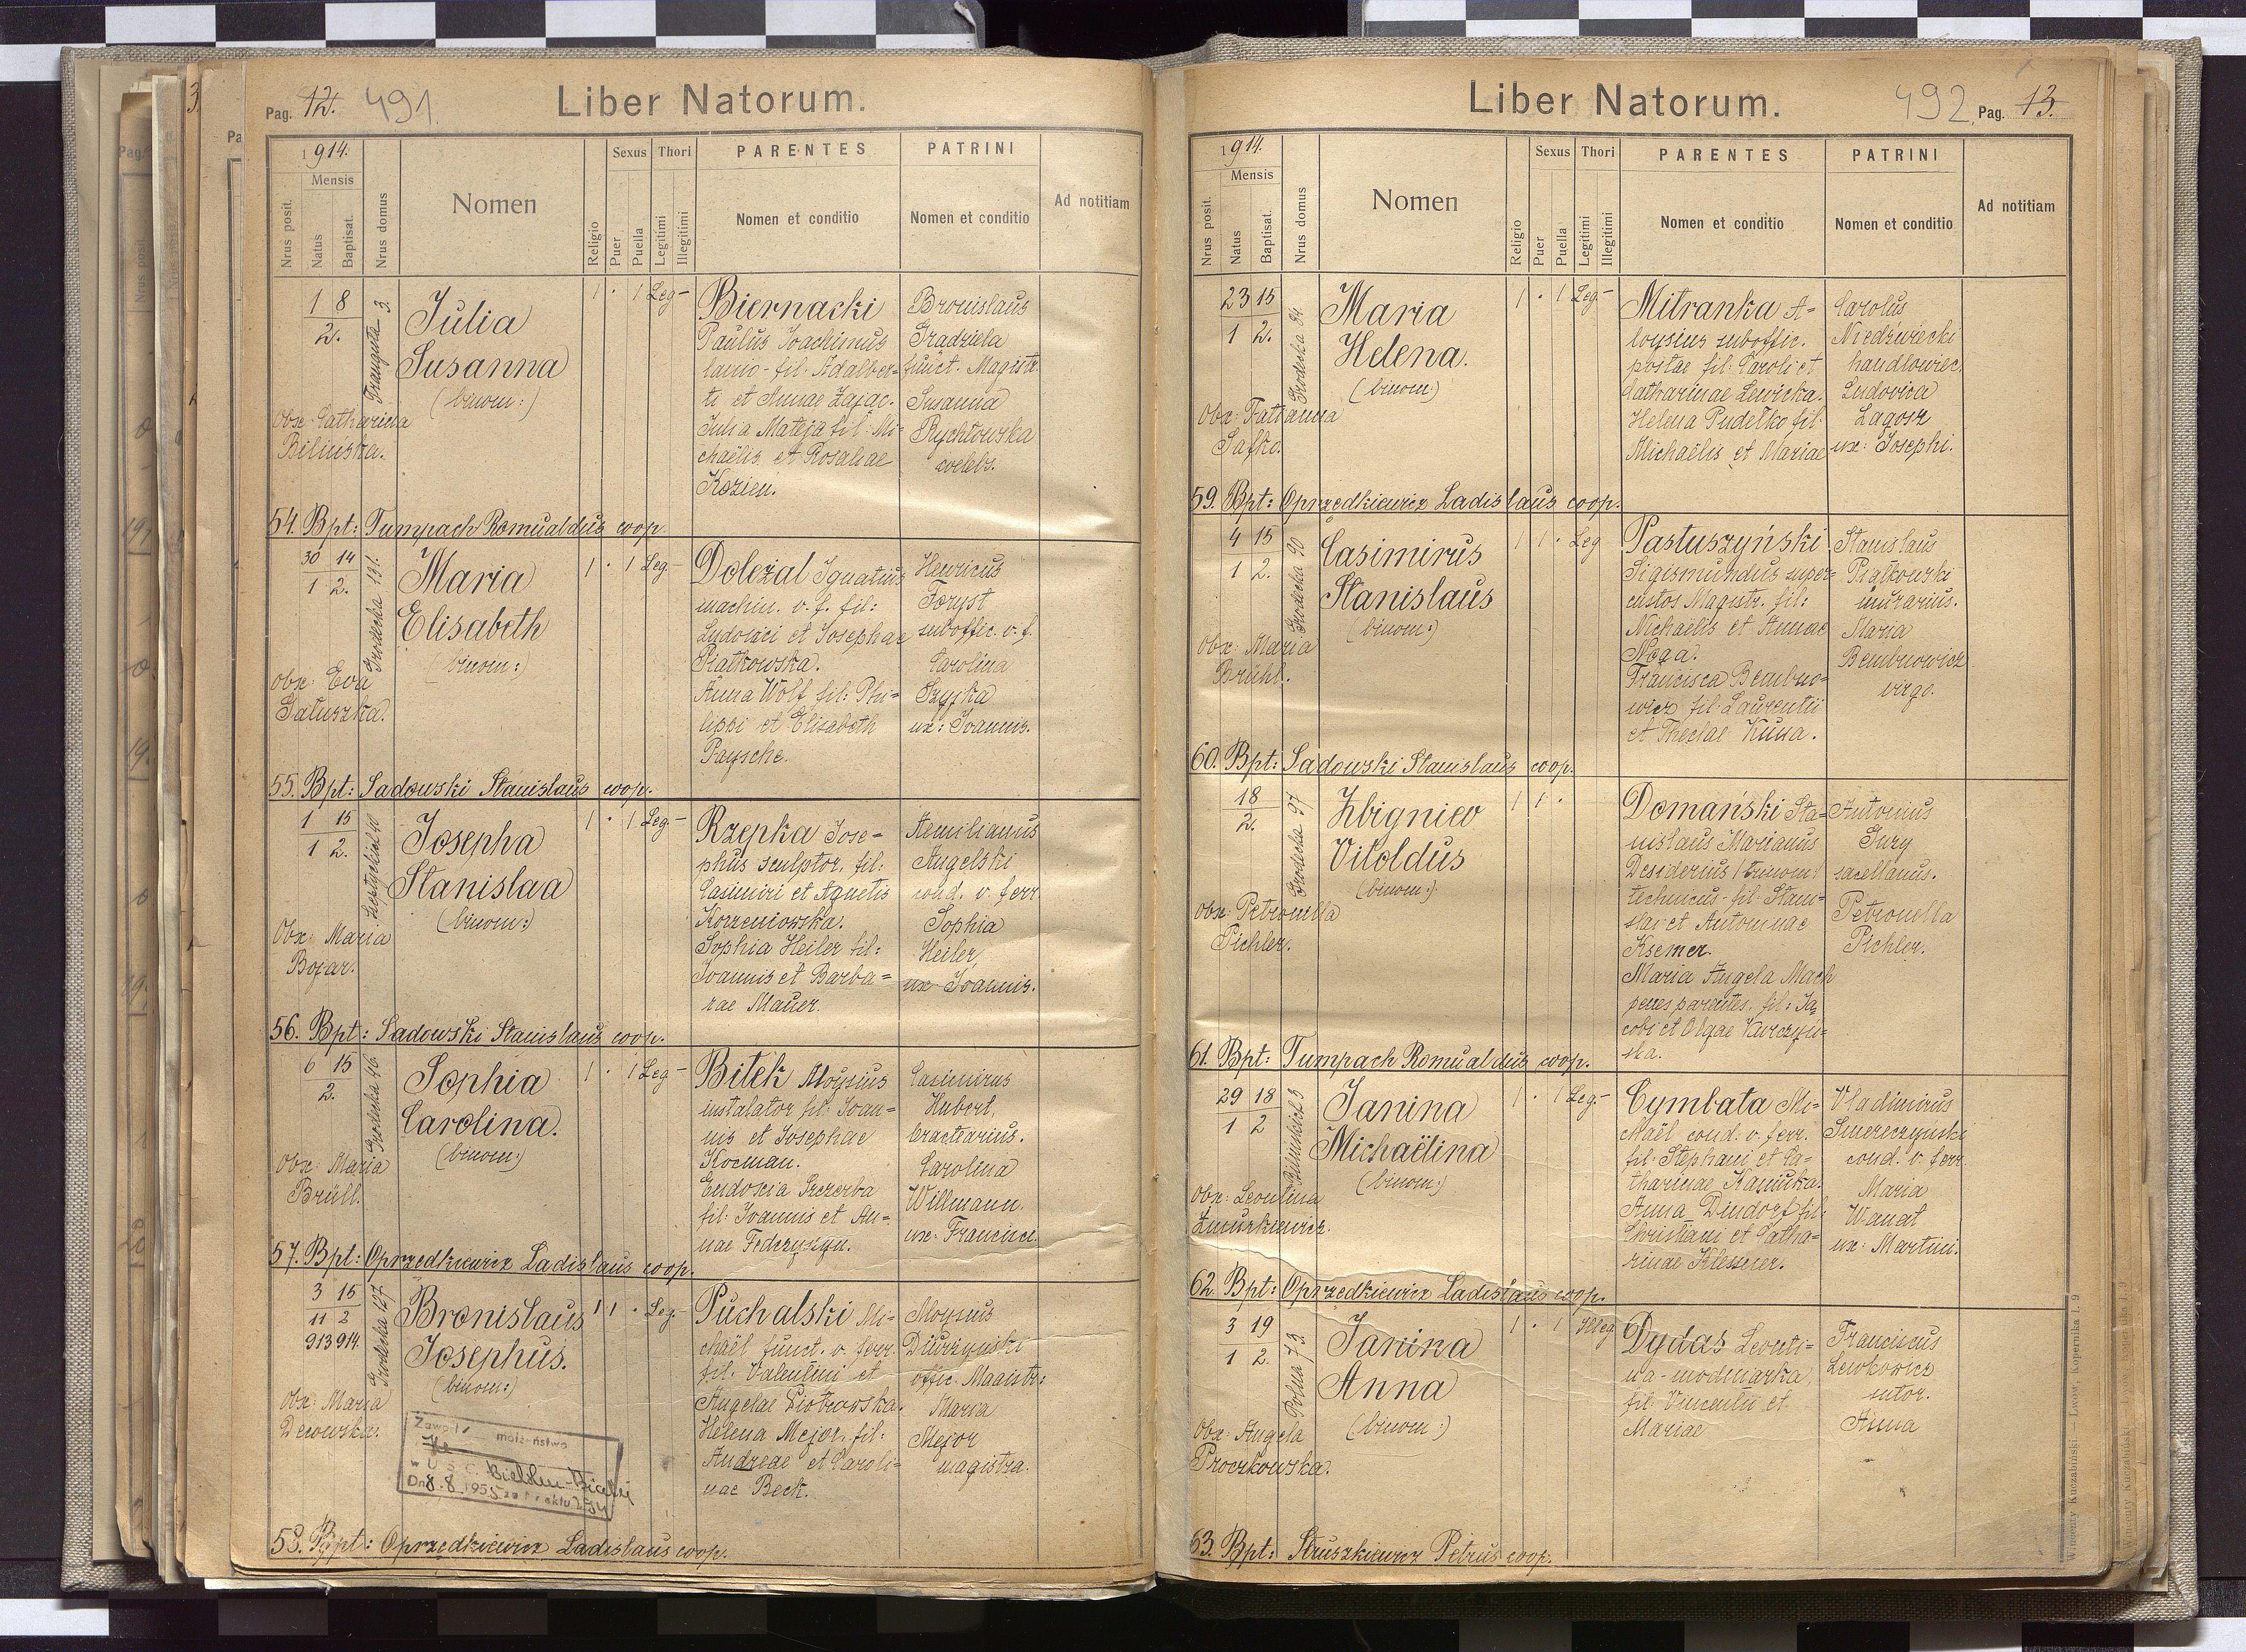 Pag. 12. 491.
Liber Natorum.
1914.
Mensis
Nrus posit.
Natus
Baptisat.
Nrus domus
Nomen
Religio
Sexus
Puer
Puella
Thori
Legitimi
Illegitimi
PARENTES
Nomen et conditio
PATRINI
Nomen et conditio
Ad notitiam
1 8
2.
Julia
Susanna
(binom:)
Obx: Catharina
Bilińska.
1 · 1 Leg -
Biernacki
Paulus Joachimus
lanio - fil. Adalber=
ti et Annae Zając.
Julia Mateja fil: Mi=
chaëlis et Rosaliae
Kozień.
Bronislaus
Gradziela
funct. Magistr.
Susanna
Rychłowska
coelebs.
54. Bpt: Tumpach Romualdus coop.
30 14
1 2.
Grodecka 131.
Maria
Elisabeth
(binom:)
Obx: Eva
Gałuszka.
1 · 1 Leg -
Doležal Ignatius
machin. v. f. fil:
Ludovici et Josephae
Piatkowska.
Anna Wolf fil: Phi=
lippi et Elisabeth
Paysche.
Henricus
Foryst
suboffic. v. f.
Carolina
Szypka
ux: Joannis.
55. Bpt: Sadowski Stanislaus coop.
1 15
1 2.
Josepha
Stanislaa
(binom:)
Obx: Maria
Bojar.
1 · 1 Leg -
Rzepka Jose=
phus sculptor, fil:
Casimiri et Agnetis
Korzeniowska.
Sophia Heiler fil:
Joannis et Barba=
rae Mauer.
Aemilianus
Angelski
cond. v. ferr.
Sophia
Heiler,
ux Joannis.
56. Bpt: Sadowski Stanislaus coop.
6 15
2.
Grodecka 46.
Sophia
Carolina.
(binom:)
Obx: Maria
Brüll.
1 · 1 Leg -
Bitek Aloysius
instalator fil: Joan=
nis et Josephae
Kocman.
Eudoxia Szczerba
fil: Joannis et An=
nae Fedczyszyn.
Casimirus
Hubert,
tractearius.
Carolina
Willmann.
ux: Francisci.
57. Bpt: Oprzedkiewicz Ladislaus coop.
3 15
11 2
913 914.
Grodecka 127
Bronislaus
Josephus.
(binom:)
Obx: Maria
Derewska.
1 1 · Leg -
Puchalski Mi=
chaël funct. v. ferr.
fil: Valentini et
Angelae Piotrowska.
Helena Mejor, fil:
Andreae et Caroli=
nae Beck.
Aloysius
Diurzynski
offic. Magistr:
Maria
Mejor
magistra.
Zawarł małżeństwo
w U S C. Bielsku-Białej
Dn. 8.8.1955 za Nr aktu
58. Bpt: Oprzedkiewicz Ladislaus coop.
Liber Natorum.
492. Pag. 13.
1914.
Mensis
Nrus posit.
Natus
Baptisat.
Nrus domus
Nomen
Religio
Sexus
Puer
Puella
Thori
Legitimi
Illegitimi
PARENTES
Nomen et conditio
PATRINI
Nomen et conditio
Ad notitiam
23 15
1 2.
Grodecka 84
Maria
Helena.
(binom:)
Obx: Tatianna
Safko.
1 · 1 Leg -
Mitranka A=
loysius suboffic.
postae fil: Caroli et
Catharinae Lewicka.
Helena Pudełko fil:
Michaëlis et Mariae
Carolus
Niedźwiecki
handlowiec,
Ludovica
Lagosz
ux: Josephi.
59. Bpt: Oprzedkiewicz Ladislaus coop.
4 15
1 2.
Grodecka 90
Casimirus
Stanislaus
(binom:)
Obx: Maria
Brühl.
1 1 · Leg
Pastuszyński
Sigismundus super=
custos Magistr. fil:
Michaëlis et Annae
Noga.
Francisca Bembno=
wicz fil: Laurentii
et Theclae Kuna.
Stanislaus
Piątkowski
murarius.
Maria
Bembnowicz
virgo.
60. Bpt: Sadowski Stanislaus coop.
18
2.
Grodecka 97
Zbigniev
Vitoldus
(binom:)
Obx: Petronilla
Pichler.
1 1 ·
Domański Sta=
nislaus Marianus
Desiderius (trinom)
technicus - fil: Stani=
slai et Antoninae
Ksemer.
Maria Angela Mach
penes parentes. fil: Ja
cobi et Olgae Kurczyń=
ska.
Antonius
Jury
sacellanus.
Petronella
Pichler.
61. Bpt: Tumpach Romualdus coop.
29 18
1 2
Janina
Michaëlina
(binom:)
Obx: Leontina
Żmurkiewicz.
1 · 1 Leg. -
Cymbata Mi=
chaël cond. v. ferr.
fil: Stephani et Ca=
tharinae Kaminka.
Anna Dindorf fil:
Christiani et Catha=
rinae Klessner.
Vladimirus
Smereczyński
cond. v. ferr.
Maria
Wanat
ux: Martini.
62. Bpt: Oprzedkiewicz Ladislaus coop.
3 19
1 2.
Polna 73.
Janina
Anna
(binom:)
Obx: Angela
Proczkowska.
1 · 1 Illeg
Dydas Leonti=
na - modniarka
fil: Vincentii et
Mariae
Franciscus
Lewkowicz
sutor.
Anna
63. Bpt: Struszkiewicz Petrus coop.
Wincenty Kuczabiński — Lwów, Kopernika l. 9